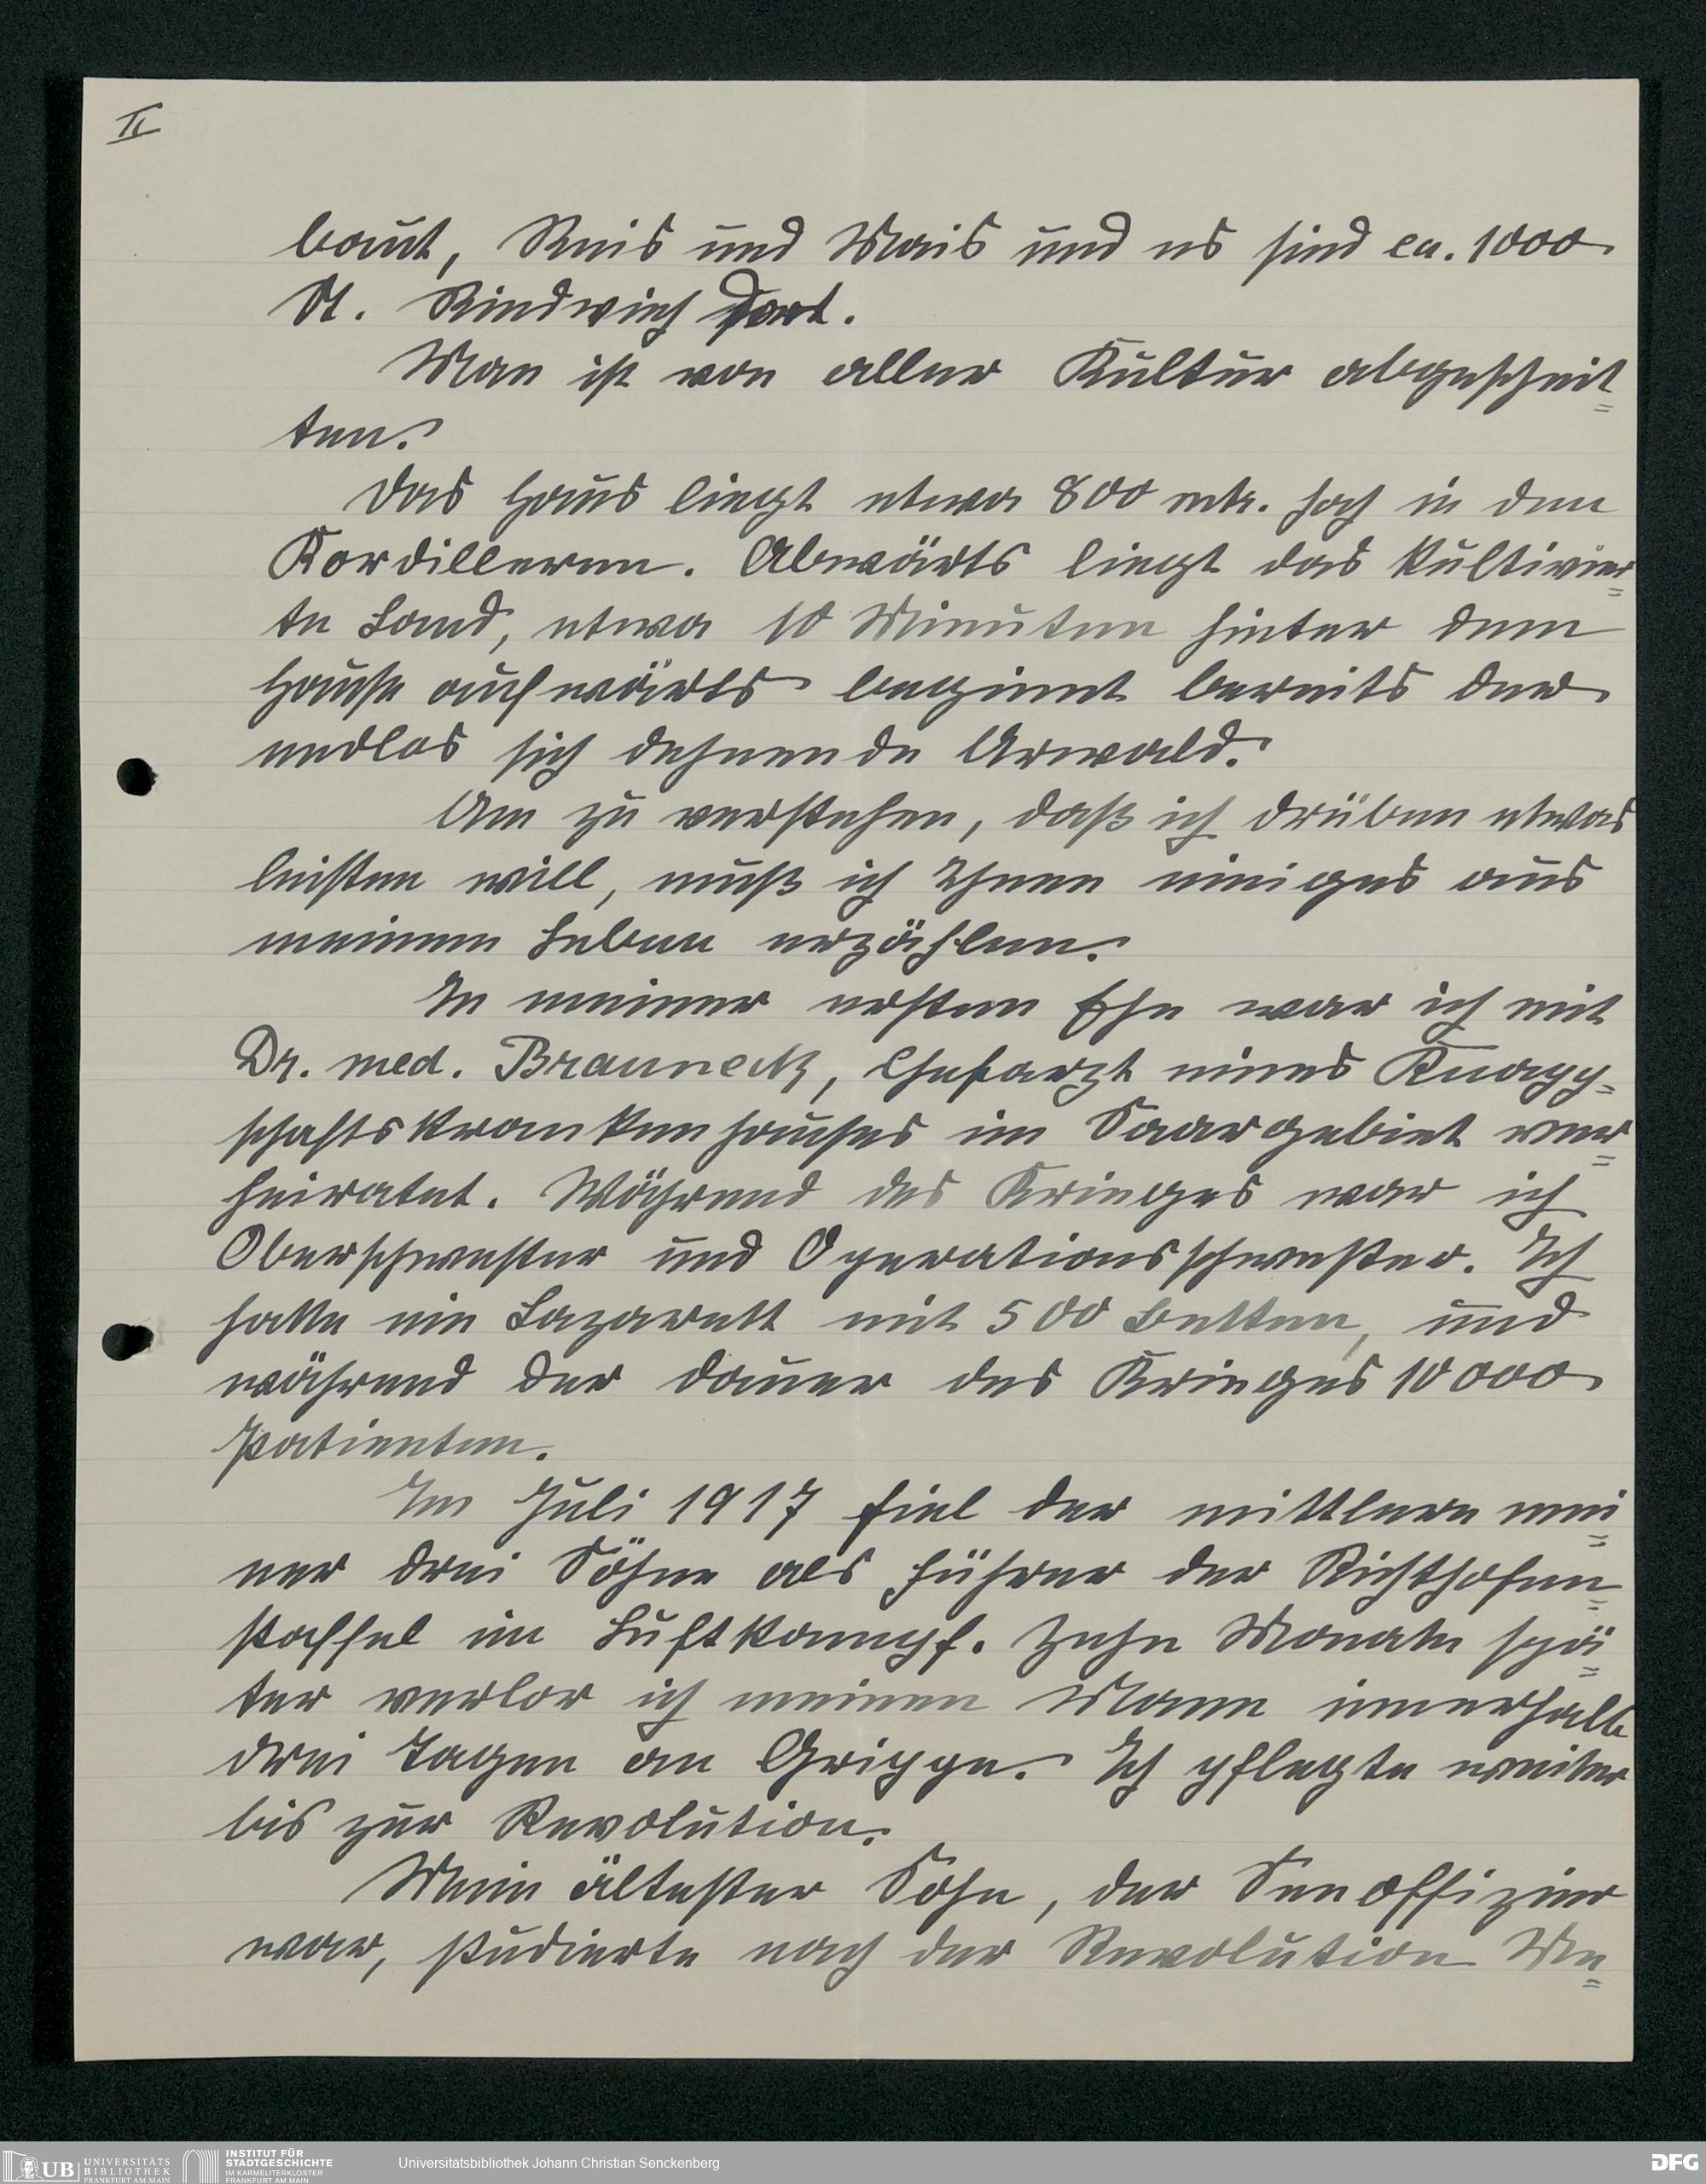 II
baut, Reis und Mais und es sind ca. 1000
St. Rindvieh dort.
Man ist von aller Kultur abgeschnit=
ten.
Das Haus liegt etwa 800 mtr. hoch in den
Kordilleren. Abwärts liegt das kultivier=
te Land, etwa 10 Minuten hinter dem
Hause aufwärts beginnt bereits der
endlos sich dehnende Urwald.
Um zu verstehen, daß ich drüben etwas
leisten will, muß ich Ihnen einiges aus
meinem Leben erzählen.
In meiner ersten Ehe war ich mit
Dr. med. Brauneck, Chefarzt eines Knapp=
schaftskrankenhauses im Saargebiet ver=
heiratet. Während des Krieges war ich
Oberschwester und Operationsschwester. Ich
hatte ein Lazarett mit 500 Betten, und
während der Dauer des Krieges 10000
Patienten.
Im Juli 1917 fiel der mittlere mei=
ner drei Söhne als Führer der Richthofen=
staffel im Luftkampf. Zehn Monate spä=
ter verlor ich meinen Mann innerhalb
drei Tagen an Grippe. Ich pflegte weiter
bis zur Revolution.
Mein ältester Sohn, der Seeoffizier
war, studierte nach der Revolution Me=
UB UNIVERSITÄTS
BIBLIOTHEK
FRANKFURT AM MAIN
INSTITUT FÜR
STADTGESCHICHTE
IM KARMELITERKLOSTER
FRANKFURT AM MAIN
Universitätsbibliothek Johann Christian Senckenberg
DFG